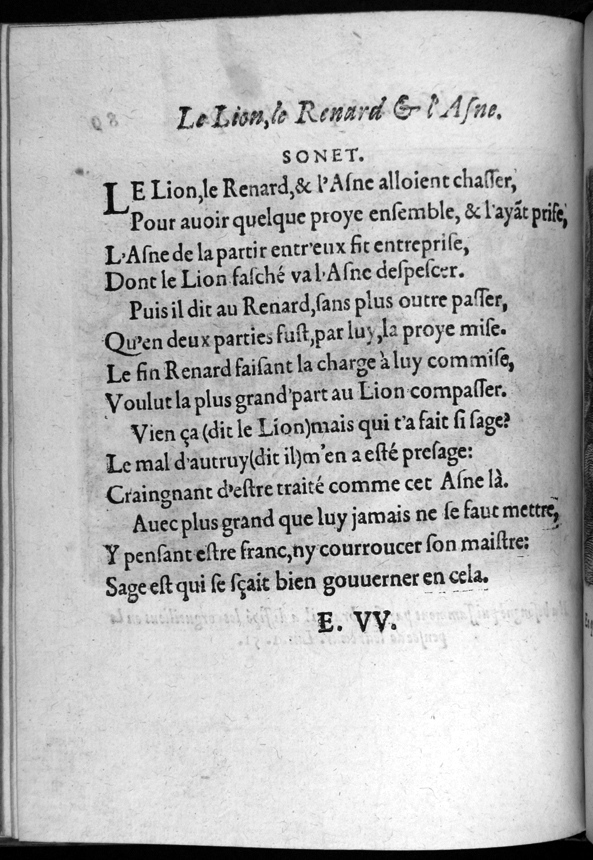 Le Lion, le Renard & l'Aſne.
SONET.
LE Lion, le Renard, & l'Aſne alloient chaſſer,
Pour auoir quelque proye enſemble, & l'ayãt priſe,
L'Aſne de la partir entr'eux fit entrepriſe,
Dont le Lion faſché va l'Aſne deſpeſcer.
Puis il dit au Renard, ſans plus outre paſſer,
Qu'en deux parties fuſt, par luy, la proye miſe.
Le fin Renard faiſant la charge à luy commiſe,
Voulut la plus grand'part au Lion compaſſer.
Vien ça (dit le Lion) mais qui t'a fait ſi ſage?
Le mal d'autruy (dit il) m'en a eſté preſage:
Craingnant d'eſtre traité comme cet Aſne là.
Auec plus grand que luy jamais ne ſe faut mettre,
Y penſant eſtre franc, ny courroucer ſon maiſtre:
Sage eſt qui ſe ſçait bien gouuerner en cela.
E. VV.